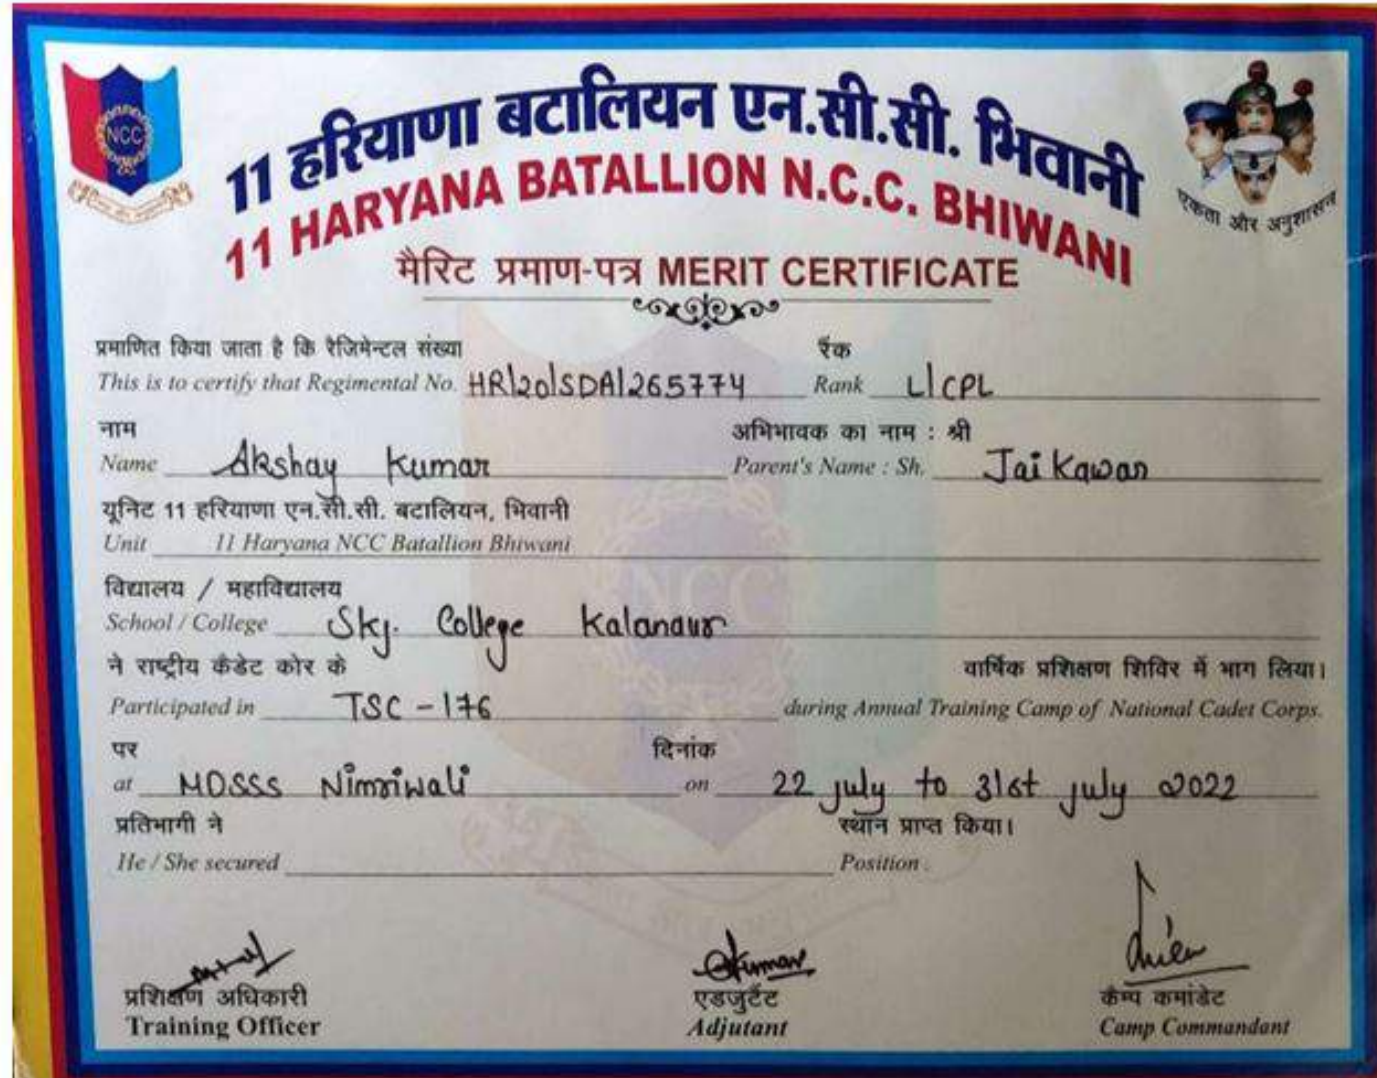 NCC
11 हरियाणा बटालियन एन.सी.सी. भिवानी
11 HARYANA BATALLION N.C.C. BHIWANI
एकता और अनुशासन
मैरिट प्रमाण-पत्र MERIT CERTIFICATE
प्रमाणित किया जाता है कि रेजिमेन्टल संख्या रैंक
This is to certify that Regimental No. HR|20|SDA|265774 Rank L|CPL
नाम अभिभावक का नाम : श्री
Name Akshay Kumar Parent's Name : Sh. Jai Kawan
यूनिट 11 हरियाणा एन.सी.सी. बटालियन, भिवानी
Unit 11 Haryana NCC Batallion Bhiwani
विद्यालय / महाविद्यालय
School / College Skj. College Kalanaur
ने राष्ट्रीय कैडेट कोर के वार्षिक प्रशिक्षण शिविर में भाग लिया।
Participated in TSC - 176 during Annual Training Camp of National Cadet Corps.
पर दिनांक
at MDSSS Nimriwali on 22 july to 31st july 2022
प्रतिभागी ने स्थान प्राप्त किया।
He / She secured Position .
प्रशिक्षण अधिकारी एडजुटैंट कैम्प कमांडेट
Training Officer Adjutant Camp Commandant